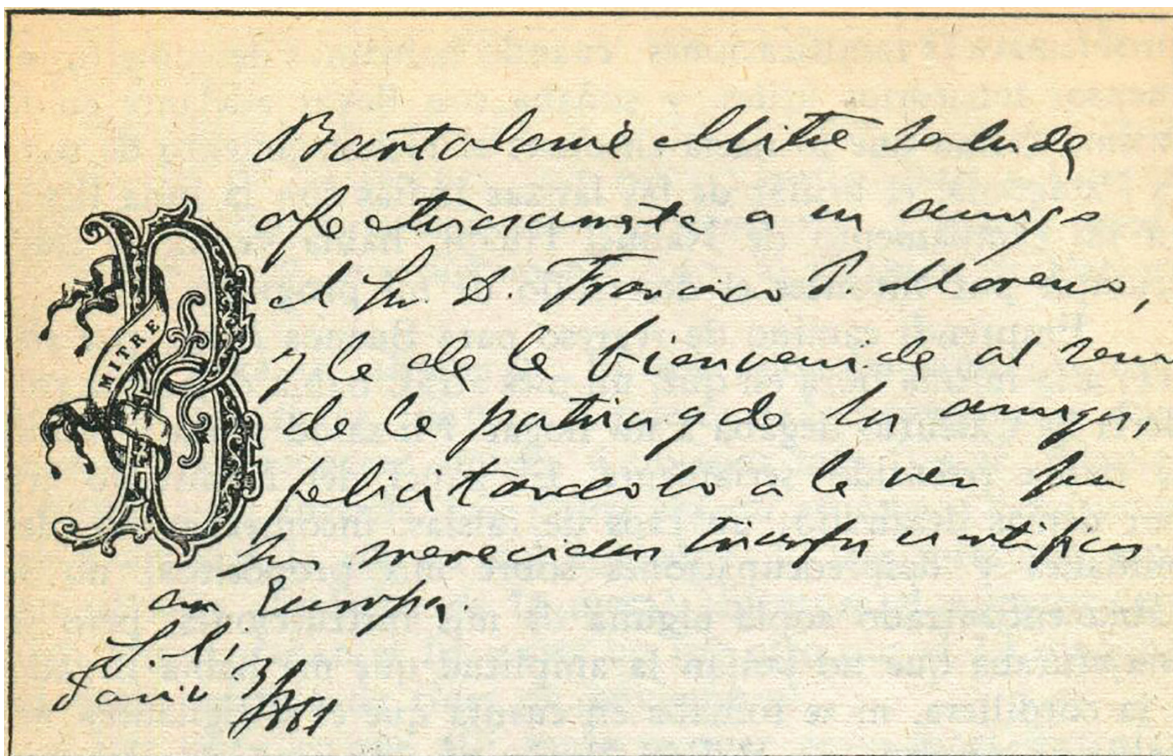 Bartolomé Mitre saluda
afectuosamente a su amigo
el Sr. D. Francisco P. Moreno,
y le da la bienvenida al seno
de la patria y de sus amigos,
felicitandolo a la vez por
sus merecidos triunfos cientificos
en Europa.
S. C.
Junio 3/1881
MITRE